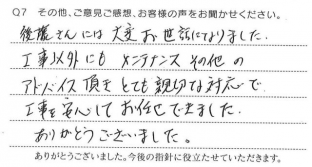 Q7 その他、ご意見ご感想、お客様の声をお聞かせください。
後藤さんには大変お世話になりました.
工事以外にも メンテナンスその他の
アドバイス頂き とても親切な対応で
工事を安心してお任せできました.
ありがとうございました。
ありがとうございました。今後の指針に役立たせていただきます。